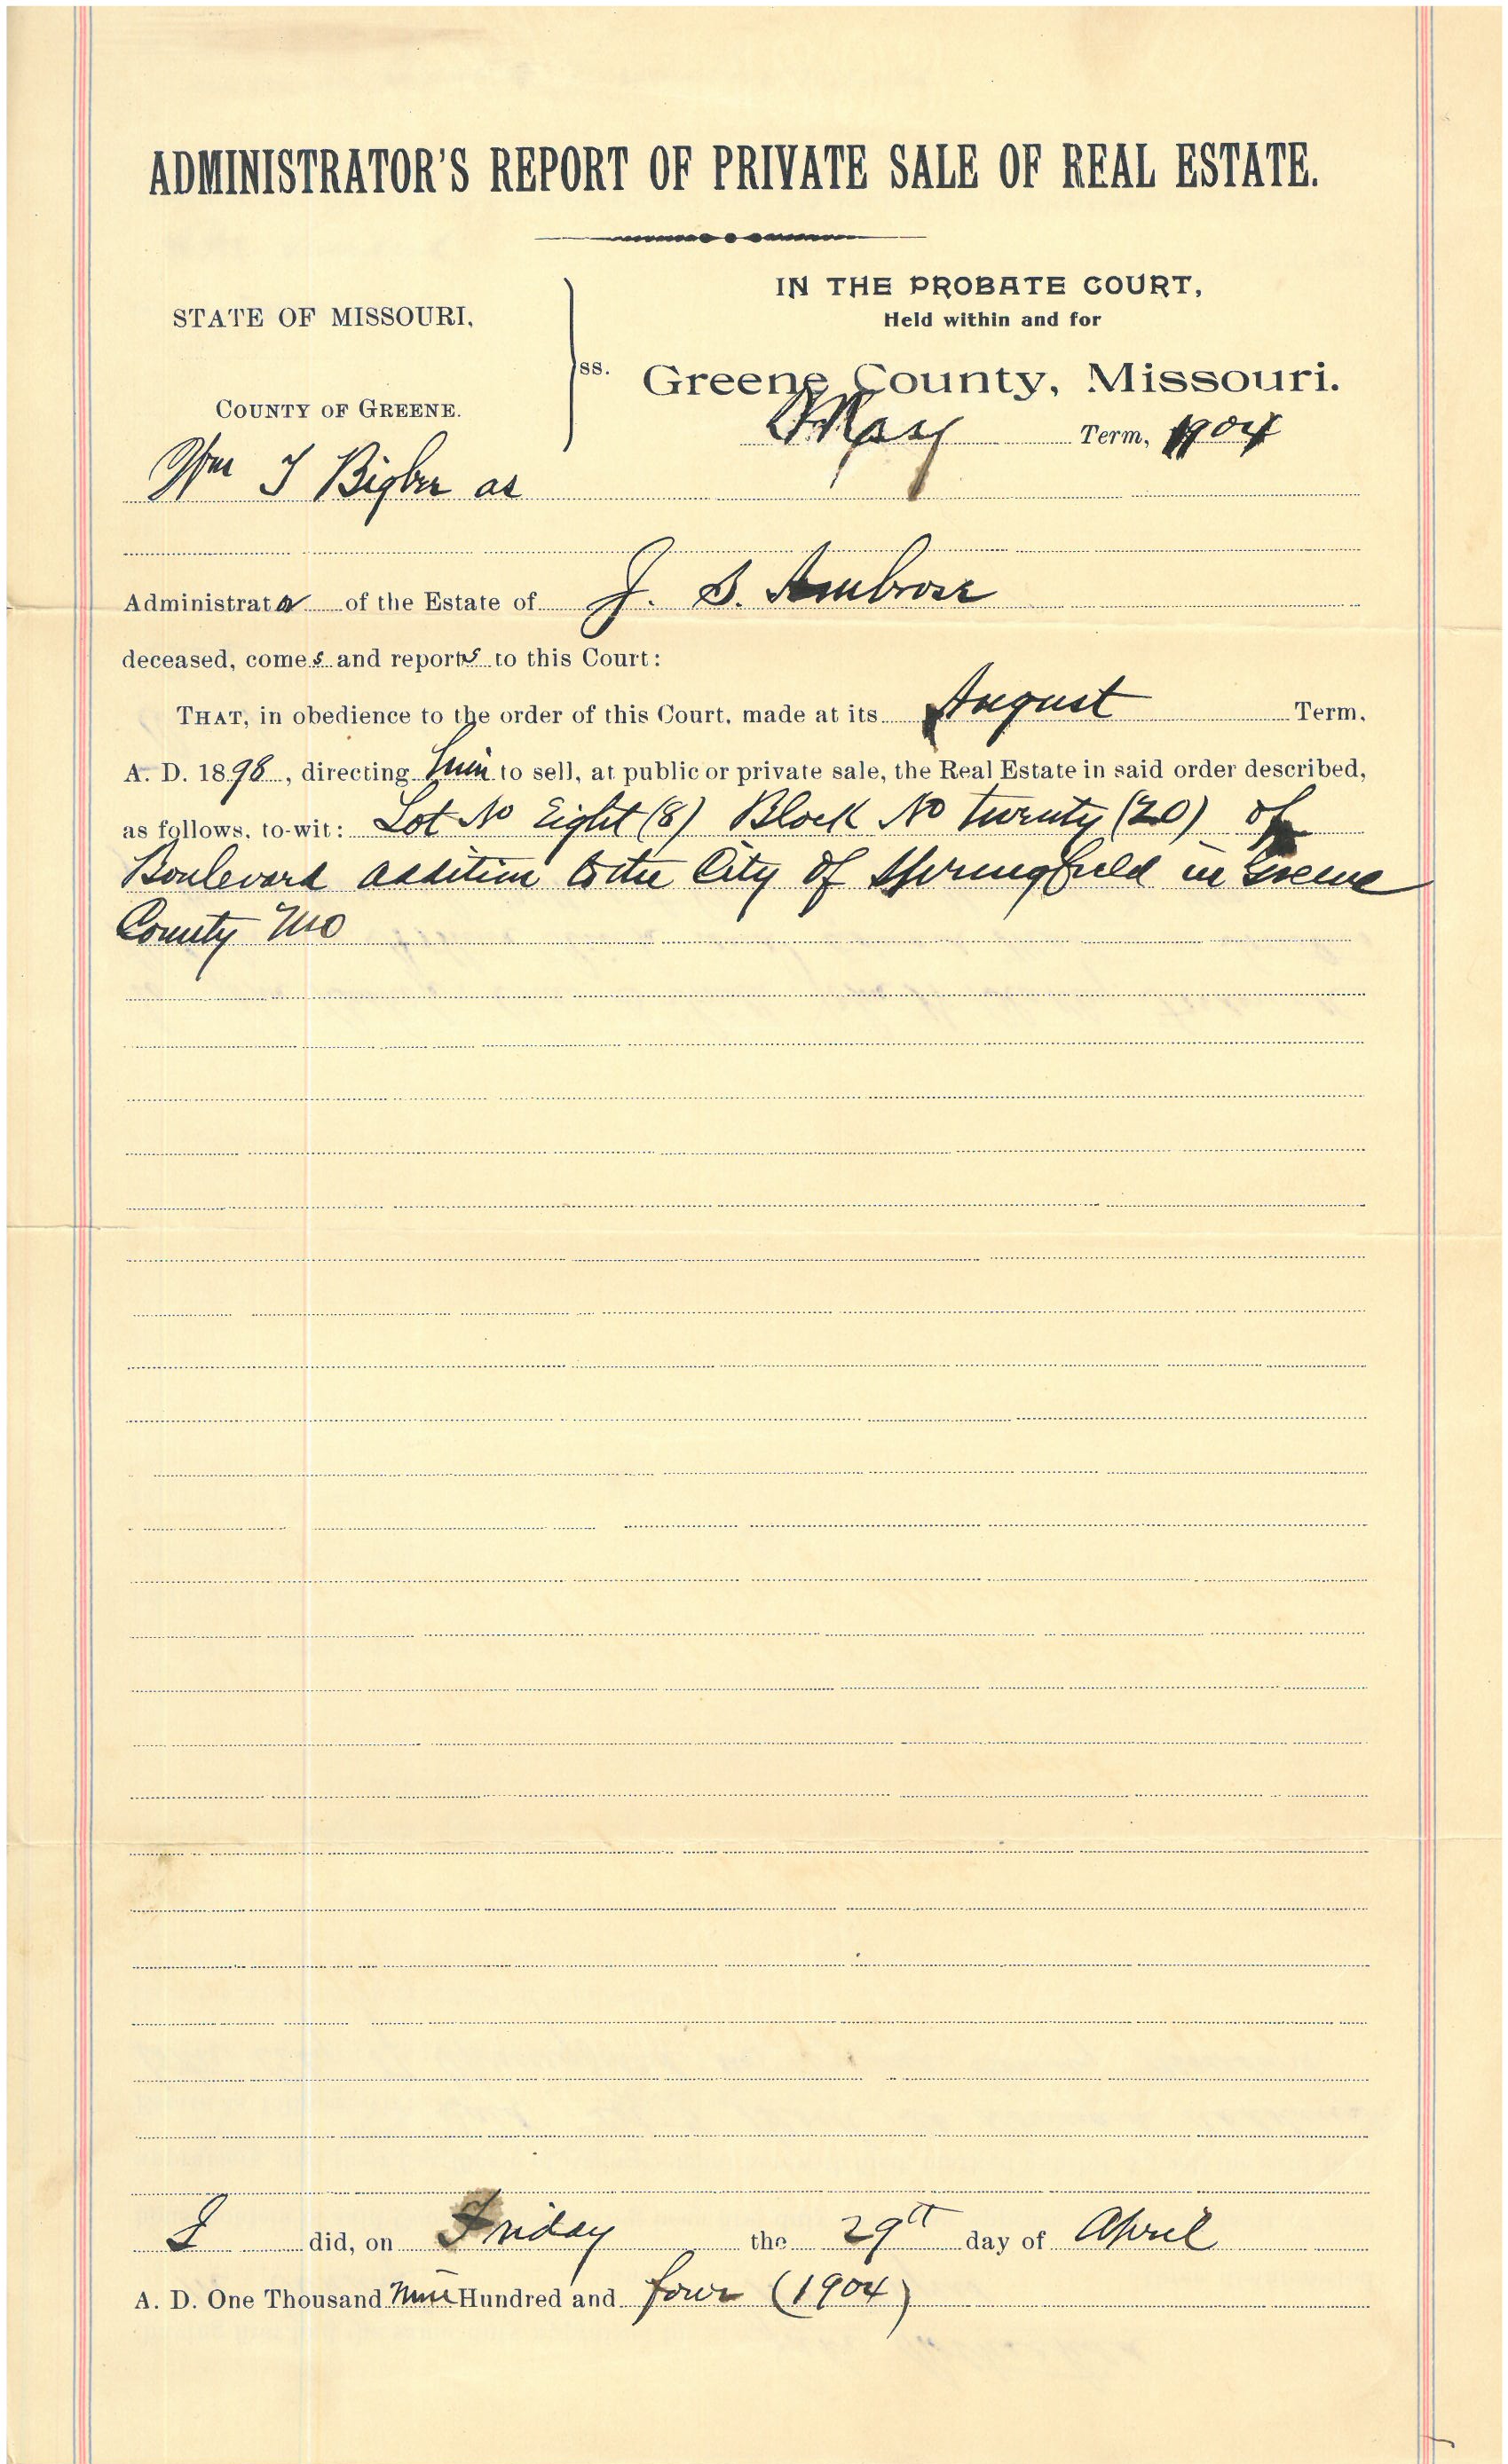 ADMINISTRATOR'S REPORT OF PRIVATE SALE OF REAL ESTATE.
STATE OF MISSOURI,
COUNTY OF GREENE.
ss.
IN THE PROBATE COURT,
Held within and for
Greene County, Missouri.
May Term, 1904
Wm I Bigbee as
Administrator of the Estate of J. S. Ambrose
deceased, comes and reports to this Court:
THAT, in obedience to the order of this Court, made at its August Term,
A. D. 1898, directing him to sell, at public or private sale, the Real Estate in said order described,
as follows, to-wit: Lot No Eight (8) Block No twenty (20) of
Boulevard addition to the City of Springfield in Greene
County Mo
I did, on Friday the 29th day of April
A. D. One Thousand Nine Hundred and four (1904)